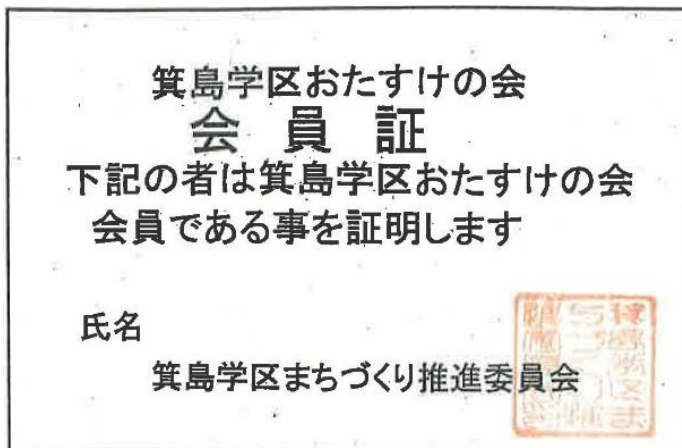 箕島学区おたすけの会
会員証
下記の者は箕島学区おたすけの会
会員である事を証明します
氏名
箕島学区まちづくり推進委員会